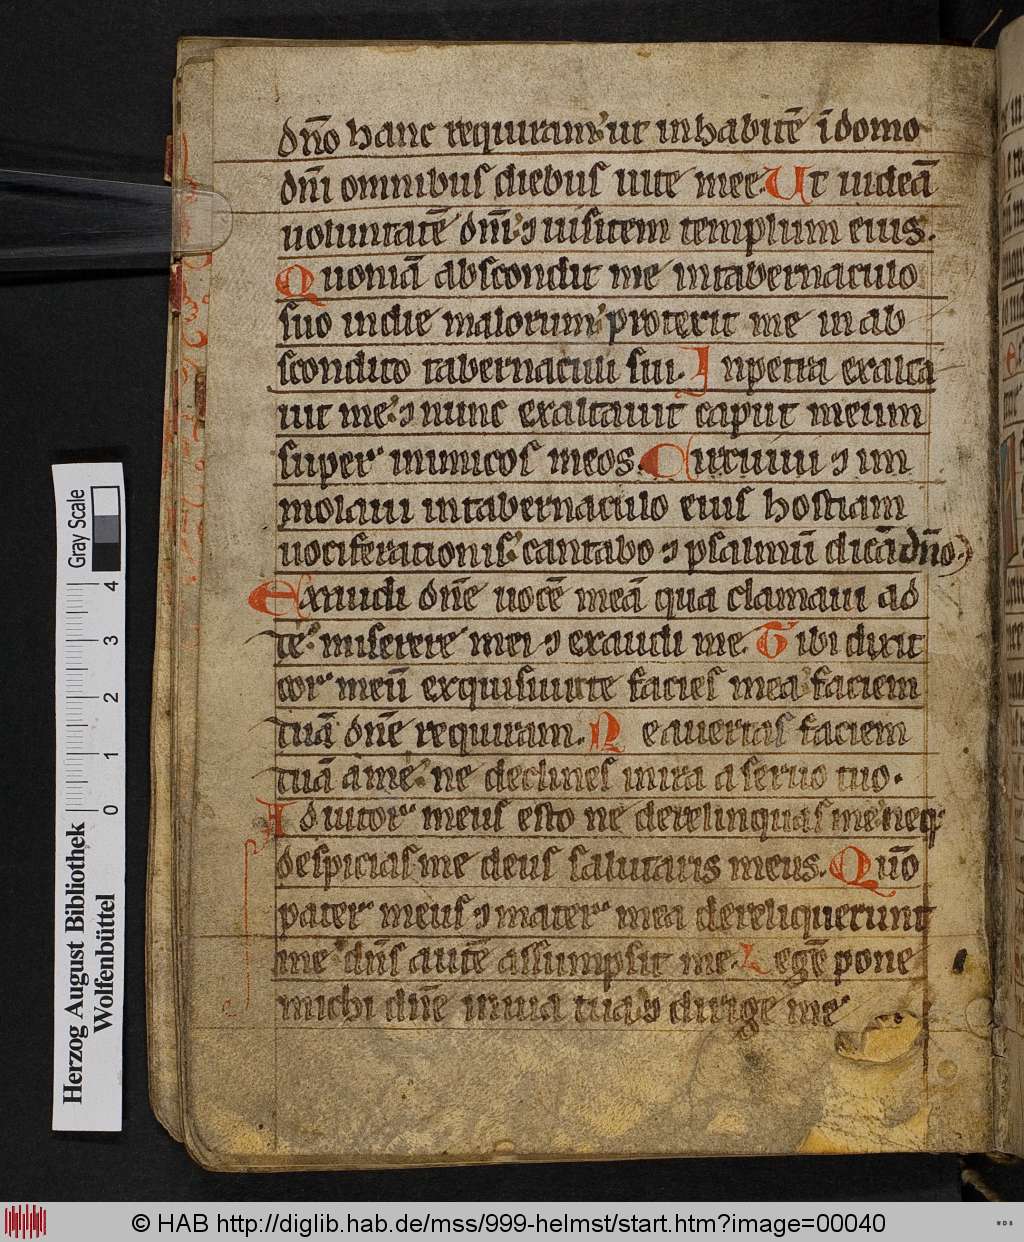 dño hanc requiram ut inhabitē ī domo
dñi omnibus diebus uite mee. Ut uideā
uoluntatē dñi ⁊ uisitem templum eius.
Quoniā abscondit me in tabernaculo
suo in die malorum protexit me in ab
scondito tabernaculi sui. In petra exalta
uit me ⁊ nunc exaltauit caput meum
super inimicos meos. Circuiui ⁊ im
molaui in tabernaculo eius hostiam
uociferationis cantabo ⁊ psalmū dicā dño.
Exaudi dñe uocē meā qua clamaui ad
te miserere mei ⁊ exaudi me. Tibi dixit
cor meū exquisiuit te facies mea faciem
tuā dñe requiram. Ne auertas faciem
tuā a me ne declines in ira a seruo tuo.
Adiutor meus esto ne derelinquas me neq;
despicias me deus salutaris meus. Qūo
pater meus ⁊ mater mea dereliquerunt
me dñs autē assumpsit me. Legē pone
michi dñe in uia tua ⁊ dirige me
Herzog August Bibliothek
Wolfenbüttel
0 1 2 3 4
Gray Scale
© HAB http://diglib.hab.de/mss/999-helmst/start.htm?image=00040